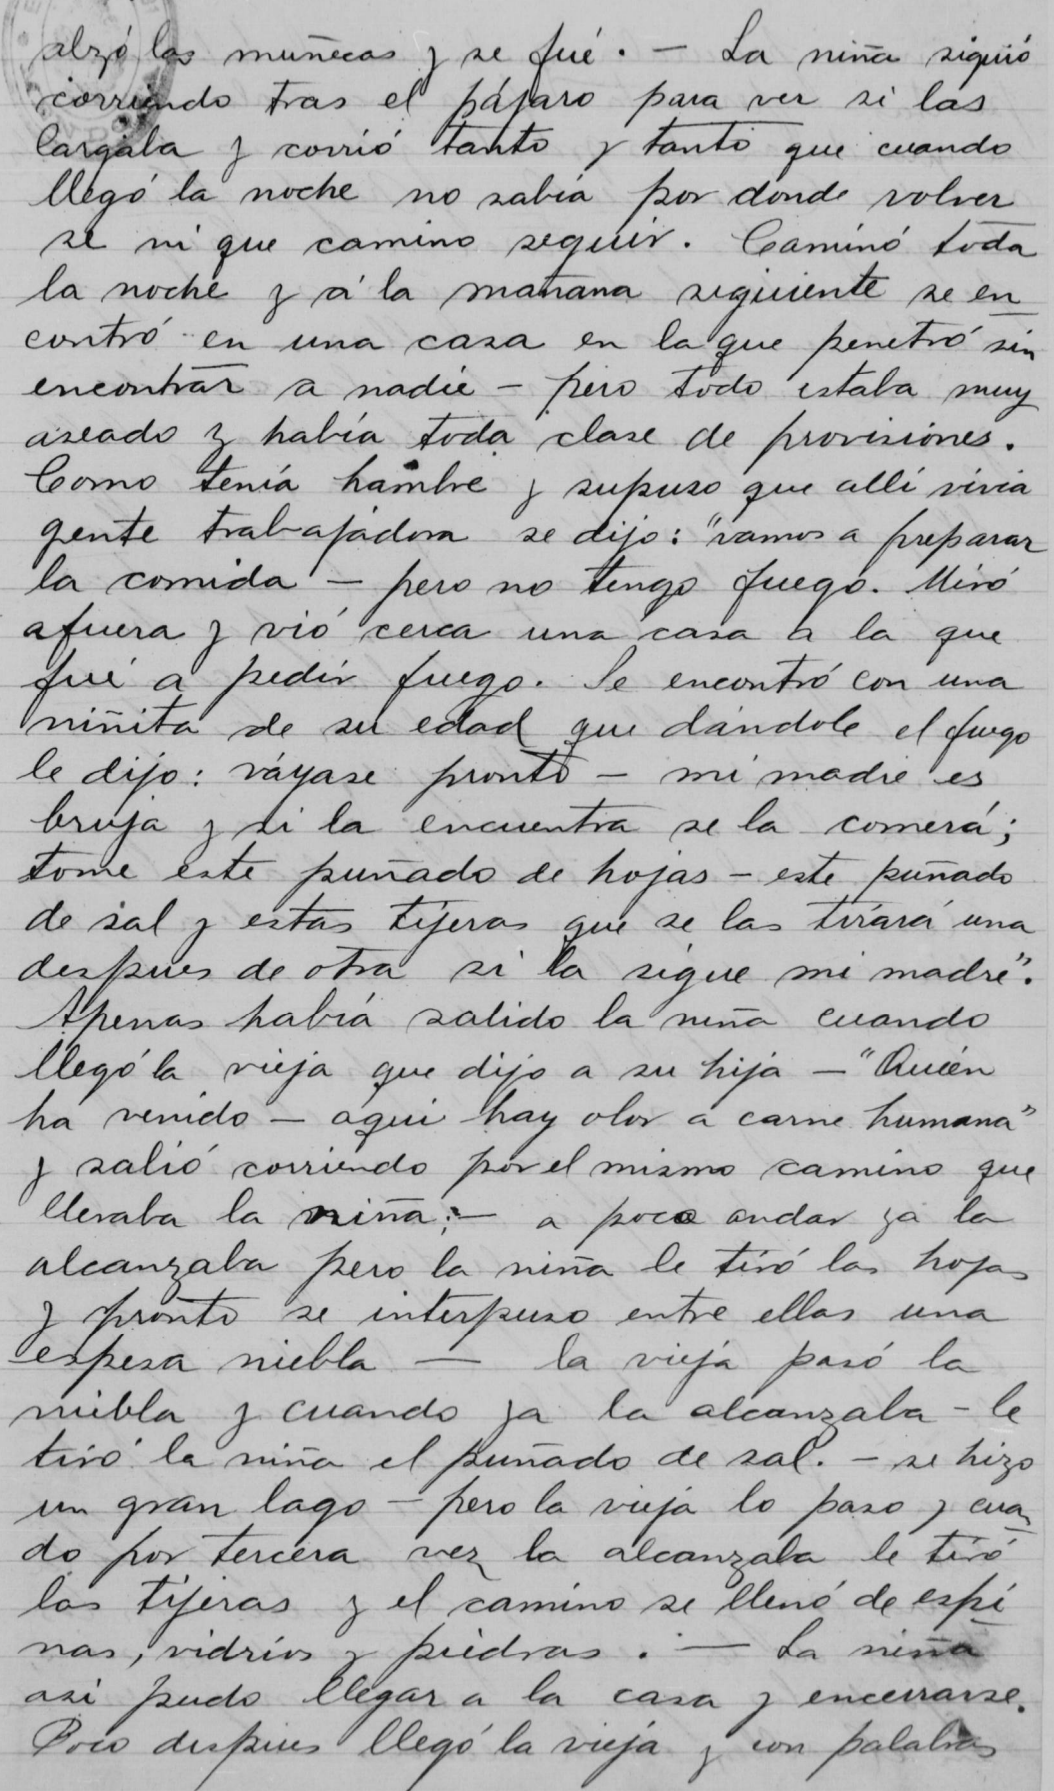 alzó las muñecas y se fué. — La niña siguió
corriendo tras el pájaro para ver si las
largaba y corrió tanto y tanto que cuando
llegó la noche no sabía por dónde volver
se ni que camino seguir. Caminó toda
la noche y á la mañana siguiente se en
contró en una casa en la que penetró sin
encontrar a nadie — pero todo estaba muy
aseado y había toda clase de provisiones.
Como tenía hambre y supuso que allí vivia
gente trabajadora se dijo: "vamos a preparar
la comida — pero no tengo fuego. Miró
afuera y vió cerca una casa a la que
fué a pedir fuego. Se encontró con una
niñita de su edad que dándole el fuego
le dijo: váyase pronto — mi madre es
bruja y si la encuentra se la comerá;
tome este puñado de hojas — este puñado
de sal y estas tijeras que se las tirará una
despues de otra si la sigue mi madre".
Apenas había salido la niña cuando
llegó la vieja que dijo a su hija — "Quién
ha venido — aqui hay olor a carne humana"
y salió corriendo por el mismo camino que
llevaba la niña; — a poco andar ya la
alcanzaba pero la niña le tiró las hojas
y pronto se interpuso entre ellas una
espesa niebla — la vieja pasó la
niebla y cuando ya la alcanzaba — le
tiró la niña el puñado de sal. — se hizo
un gran lago — pero la vieja lo paso y cuan
do por tercera vez la alcanzaba le tiró
las tijeras y el camino se llenó de espi
nas, vidrios y piedras. — La niña
asi pudo llegar a la casa y encerrarse.
Poco despues llegó la vieja y con palabras